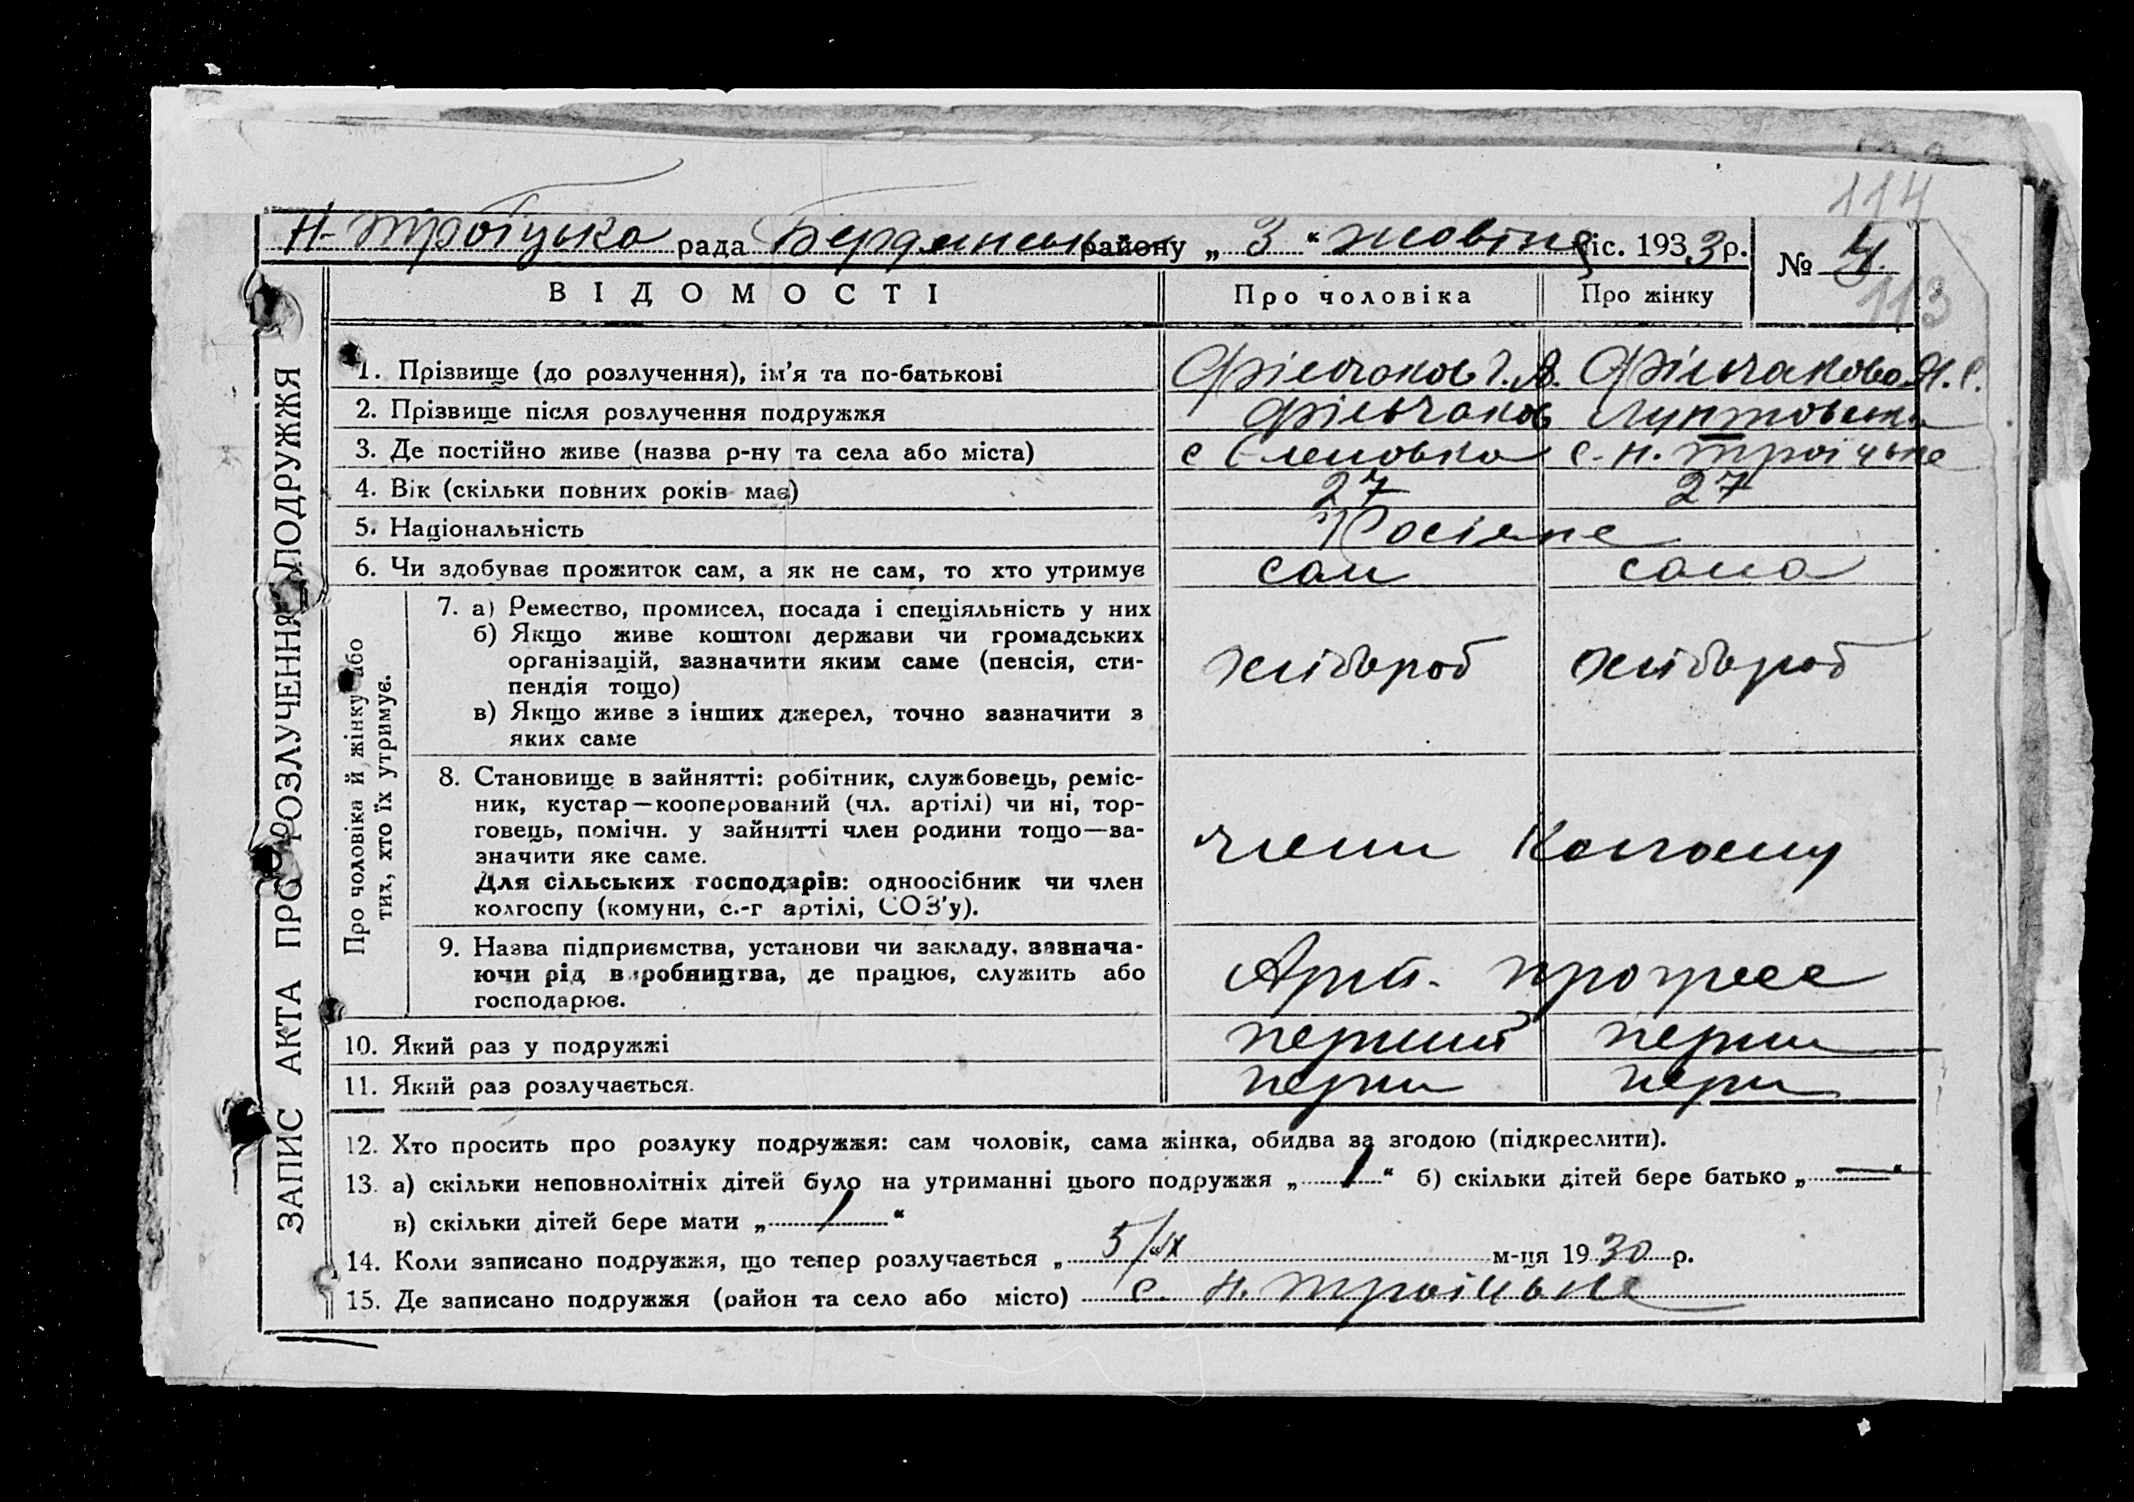 114
Н-Троїцька рада Бердянськ району „ 3 “ жовтня міс. 1933 р. № 4
113
ВІДОМОСТІ Про чоловіка Про жінку
ЗАПИС АКТА ПРО РОЗЛУЧЕННЯ ПОДРУЖЖЯ
1. Прізвище (до розлучення), ім'я та по-батькові Фільчаков Фільчакова
2. Прізвище після розлучення подружжя Фільчаков
3. Де постійно живе (назва р-ну та села або міста) с Єленовка с. Н. Троїцьке
4. Вік (скільки повних років має) 27 27
5. Національність Росіяне
6. Чи здобуває прожиток сам, а як не сам, то хто утримує сам сама
Про чоловіка й жінку або
тих, хто їх утримує.
7. а) Ремество, промисел, посада і спеціяльність у них
б) Якщо живе коштом держави чи громадських
організацій, зазначити яким саме (пенсія, сти-
пендія тощо) хлібороб хлібороб
в) Якщо живе з інших джерел, точно зазначити з
яких саме
8. Становище в зайнятті: робітник, службовець, реміс-
ник, кустар—кооперований (чл. артілі) чи ні, тор-
говець, помічн. у зайнятті член родини тощо—за-
значити яке саме. члени Колгоспу
Для сільських господарів: одноосібник чи член
колгоспу (комуни, с.-г артілі, СОЗ'у).
9. Назва підприємства, установи чи закладу, зазнача-
ючи рід виробництва, де працює, служить або Арт. прогрес
господарює.
10. Який раз у подружжі перший перши
11. Який раз розлучається. перши перш
12. Хто просить про розлуку подружжя: сам чоловік, сама жінка, обидва за згодою (підкреслити).
13. а) скільки неповнолітніх дітей було на утриманні цього подружжя „ 1 “ б) скільки дітей бере батько „ — “
в) скільки дітей бере мати „ 1 “
14. Коли записано подружжя, що тепер розлучається „ 5/ІХ м-ця 1930 р.
15. Де записано подружжя (район та село або місто) с. Н. Троїцьке